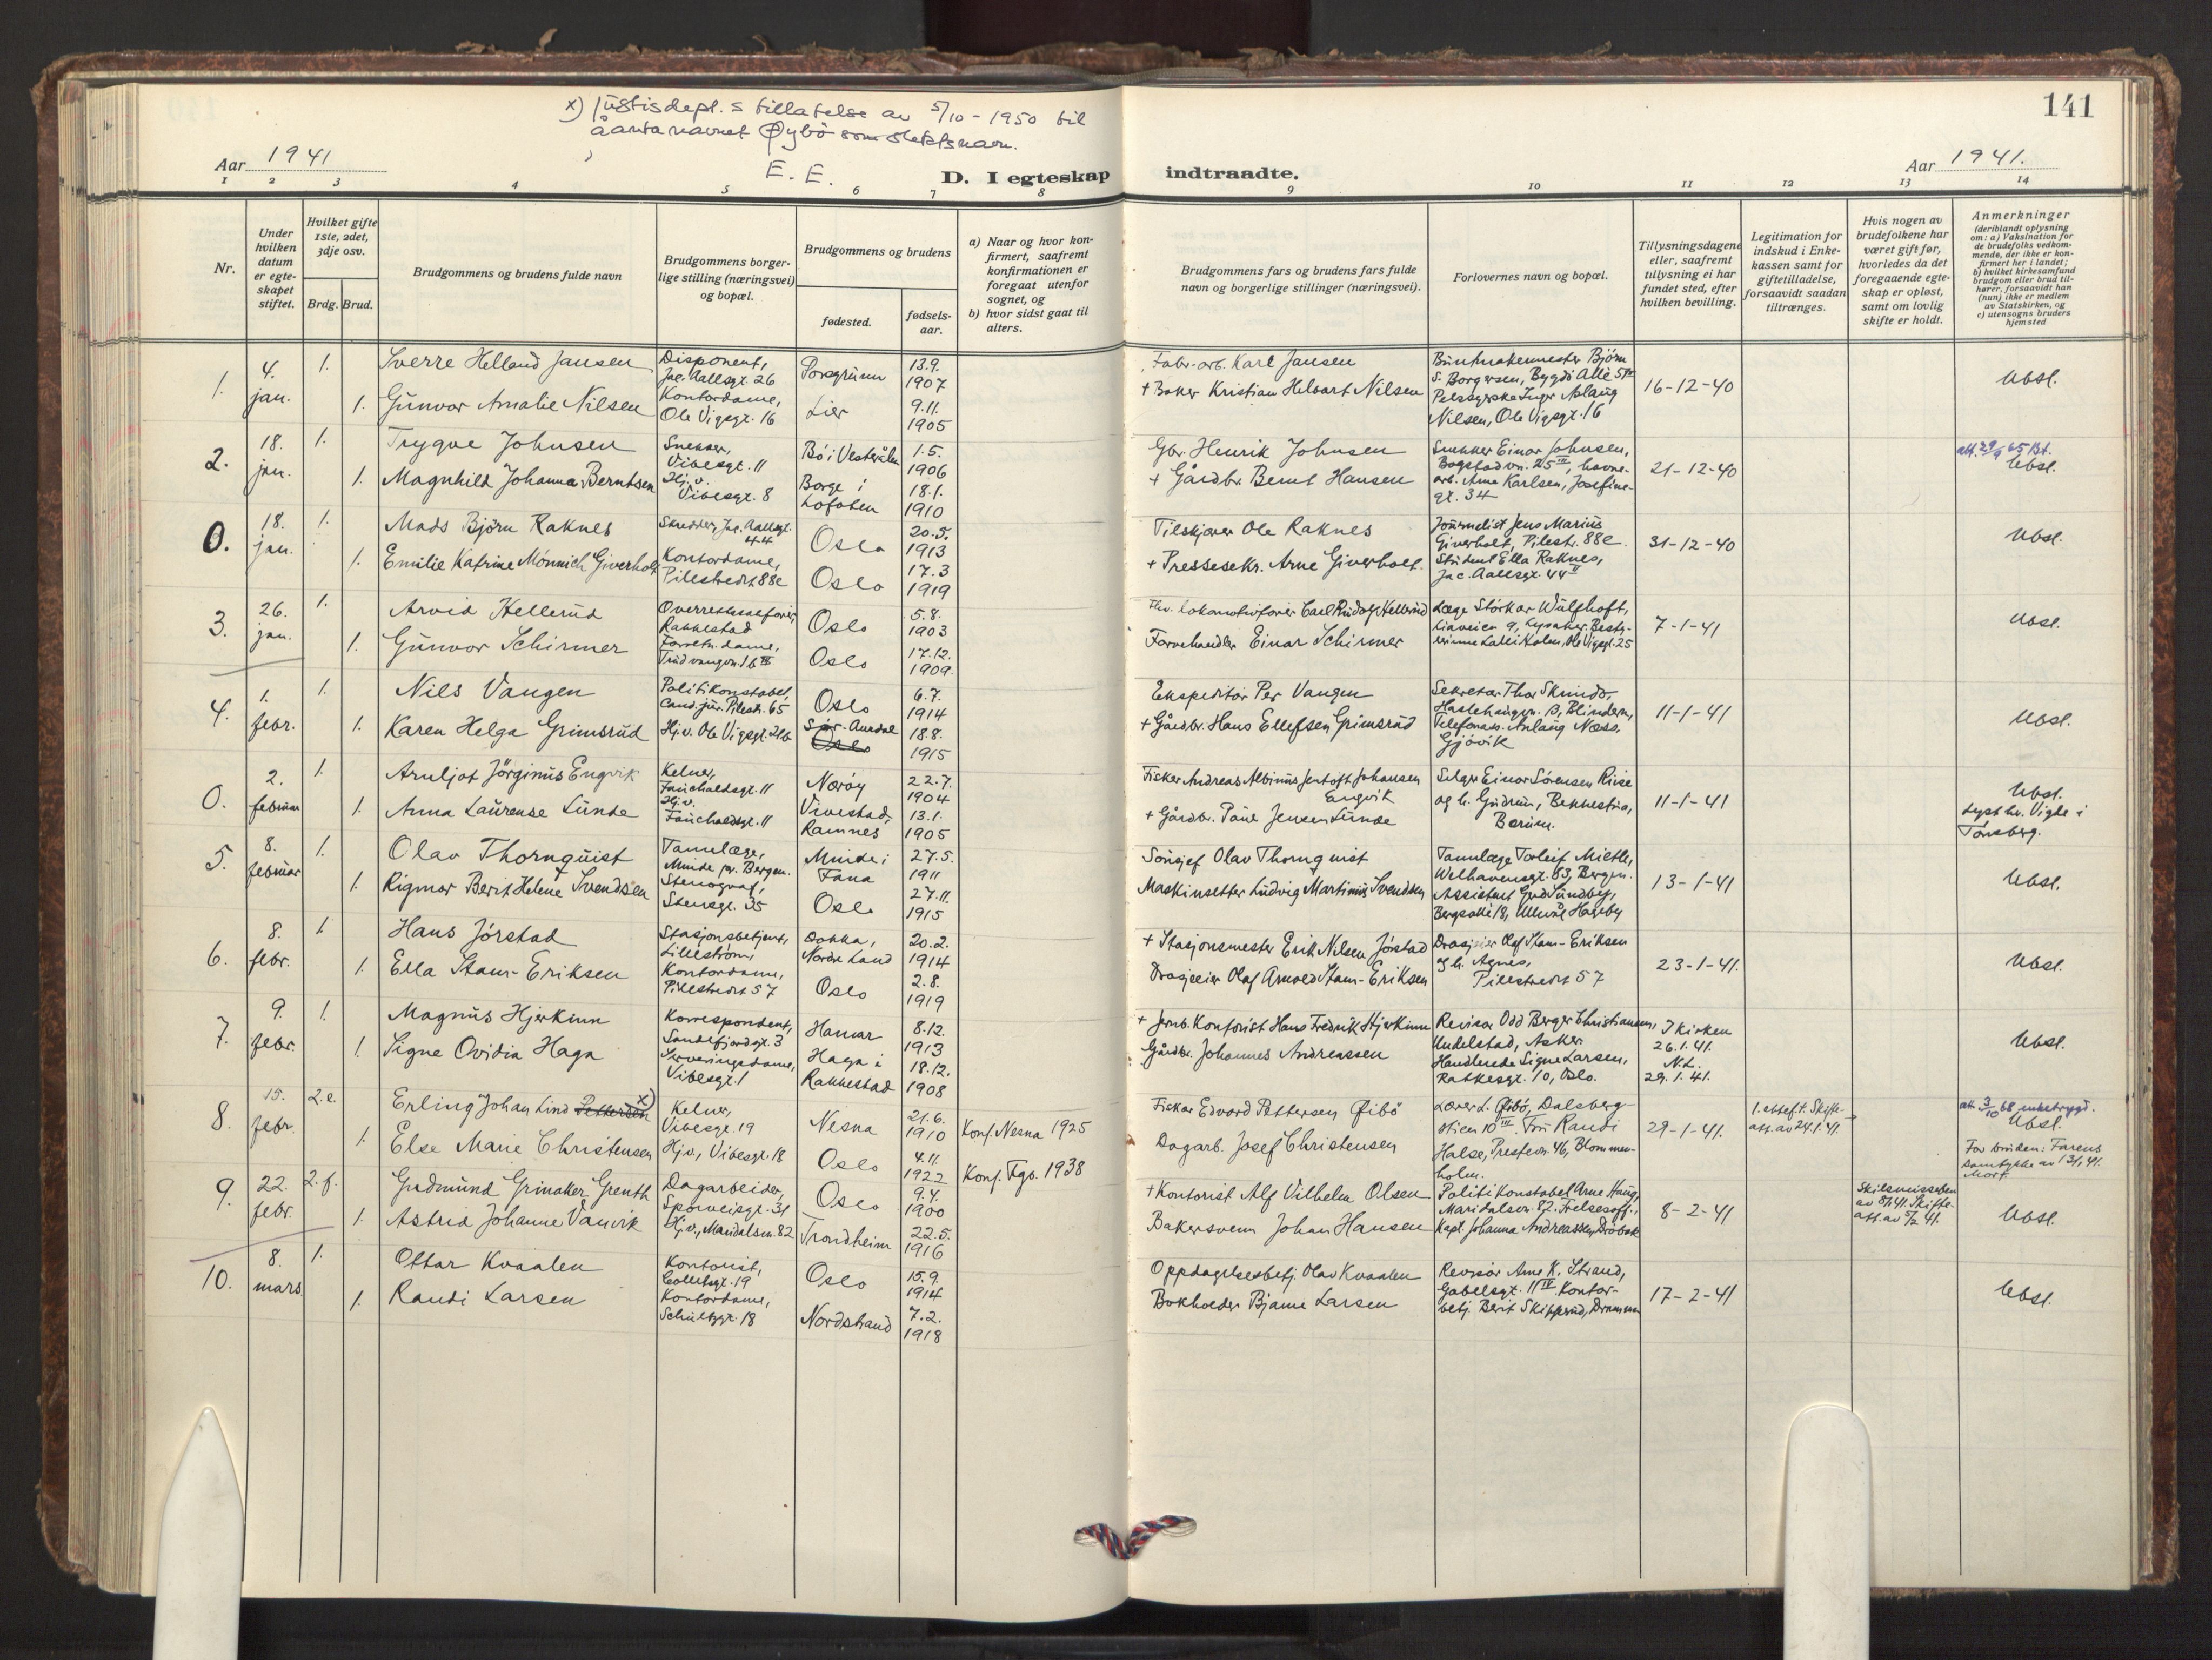 x) Justisdept.s tillatelse av 5/10-1950 til
å anta navnet Øybö som slektsnavn.
E. E.
141
Aar 1941
D. I egteskap indtraadte.
Aar 1941.
1 2 3 4 5 6 7 8 9 10 11 12 13 14
Nr.
Under hvilken datum er egteskapet stiftet.
Hvilket gifte 1ste, 2det, 3dje osv.
Brdg. Brud.
Brudgommens og brudens fulde navn
Brudgommens borgerlige stilling (næringsvei) og bopæl.
Brudgommens og brudens
fødested.
fødselsaar.
a) Naar og hvor konfirmert, saafremt konfirmationen er foregaat utenfor sognet, og
b) hvor sidst gaat til alters.
Brudgommens fars og brudens fars fulde navn og borgerlige stillinger (næringsvei).
Forlovernes navn og bopæl.
Tillysningsdagene eller, saafremt tillysning ei har fundet sted, efter hvilken bevilling.
Legitimation for indskud i Enkekassen samt for giftetilladelse, forsaavidt saadan tiltrænges.
Hvis nogen av brudefolkene har været gift før, hvorledes da det foregaaende egteskap er opløst, samt om lovlig skifte er holdt.
Anmerkninger (deriblandt oplysning om: a) Vaksination for de brudefolks vedkommende, der ikke er konfirmert her i landet; b) hvilket kirkesamfund brudgom eller brud tilhører, forsaavidt han (hun) ikke er medlem av Statskirken, og c) utensogns bruders hjemsted
1. 4. jan. 1. Sverre Helland Jansen Disponent, Jac. Aallsgt. 26 Porsgrunn 13.9. 1907 Fabr.arb. Karl Jansen Buntmakermester Bjørn S. Borgersen, Bygdö Allé
1. Gunvor Amalie Nilsen Kontordame, Ole Vigsgt. 16 Lier 9.11. 1905 + Baker Kristian Helbart Nilsen Pelssyerske Inger Aslaug Nilsen, Ole Vigsgt. 16 16-12-40 Ubsl.
2. 18. jan. 1. Trygve Johnsen Snekker, Vibesgt. 11 Bö i Vesterålen 1.5. 1906 Gbr. Henrik Johnsen Snekker Einar Johnsen, Bogstadvn. 25 III, havne-
1. Magnhild Johanna Berntsen Hj.v. Vibesgt. 8 Borge i Lofoten 18.1. 1910 + Gårdbr. Bernt Hansen arb. Arne Karlsen, Josefinegt. 34 21-12-40 Ubsl.
0. 18. jan. 1. Mads Björn Raknes Skredder, Jac. Aallsgt. 44 Oslo 20.5. 1913 Tilskjærer Ole Raknes Journalist Jens Marius Giverholt, Pilestr. 88c
1. Emilie Katrine Mönnich Giverholt Kontordame, Pilestredet 88c Oslo 17.3 1919 + Pressesekr. Arne Giverholt Student Ella Raknes, Jac. Aallsgt. 44 II 31-12-40 Ubsl.
3. 26. jan. 1. Arvid Hellerud Overrettssakförer, Rakkestad Oslo 5.8. 1903 Lokomotivförer Carl Rudolf Hellerud Læge Störkar Wulfhoft, Liaveien 9, Lysaker.
1. Gunvor Schirmer Forretn.dame, Oslo 17.12. 1909. Farvehandler Einar Schirmer Holm, Ole Vigsgt. 25 7-1-41 Ubsl.
4. 1. febr. 1. Nils Vangen Politikonstabel, Cand. jur. Pilestr. 65 Oslo 6.7. 1914 Ekspeditör Per Vangen Sekretær Thor Haslehaugvn. 13, Blindern,
1. Karen Helga Grimsrud Hj.v. Ole Vigsgt. Sör-Aurdal 18.8. 1915 + Gårdbr. Hans Ellefsen Grimsrud Aslaug Næss, Gjövik 11-1-41 Ubsl.
0. 2. februar 1. Arnljot Jörginus Engvik Kelner, Fauchaldsgt. 11 Næröy 22.7. 1904 Fisker Andreas Albinus Jentoft Johansen Engvik Selger Einar Sörensen Riise
1. Anna Laurense Lunde Hj.v. Fauchaldsgt. 11 Vivestad, Ramnes 13.1. 1905 + Gårdbr. Paul Jensen Lunde og h. Gudrun, Bekkestua, Bærum. 11-1-41 Ubsl. Lyst hr. Vigde i Tönsberg.
5. 8. februar 1. Olav Thornquist Tannlæge, Minde pr. Bergen. Minde i Fana 27.5. 1911 Olav Thornquist Tannlæge Torleif Mietle, Welhavensgt. 63, Bergen.
1. Rigmor Berit Helene Svendsen Stenograf, Stensgt. 35 Oslo 27.11. 1915 Maskinsetter Ludvig Martinius Svendsen Assistent Gerd Sundby, Bergsallé 18, Ullevål Hageby 13-1-41 Ubsl.
6. 8. febr. 1. Hans Jörstad Stasjonsbetjent, Lilleström, Dokka, Nordre Land 20.2. 1914 + Stasjonsmester Erik Nilsen Jörstad Drosjeeier Olaf Stam-Eriksen
1. Ella Stam-Eriksen Kontordame, Pilestredet 57 Oslo 2.8. 1919 Drosjeeier Olaf Arnold Stam-Eriksen og h. Agnes, Pilestredet 57 23-1-41. Ubsl.
7. 9. febr. 1. Magnus Hjerkinn Korrespondent, Sandefjordgt. 3 Hamar 8.12. 1913 + Jernb. Kontorist Hans Fredrik Hjerkinn Revisor Odd Berger Christiansen, Undelstad, Asker.
1. Signe Ovidia Haga Serveringsdame, Vibesgt. 1 Haga i Rakkestad 18.12. 1908 Gårdbr. Johannes Andreassen Handlende Signe Larsen, Ratkesgt. 10, Oslo. I kirken 26.1.41. N.L. 29.1.41. Ubsl.
8. 15. febr. 2.e. Erling Johan Lind Pettersen x) Kelner, Vibesgt. 19 Nesna 21.6. 1910 Konf. Nesna 1925 Fisker Edvard Pettersen Öibö Lærer L. Öibö, Dalsbergstien 10 III. Fru Randi
1. Else Marie Christensen Hj.v., Vibesgt. 18 Oslo 4.11. 1922 Konf. Fgb. 1938 Dagarb. Josef Christensen Halse, Prestevn. 46, Blommenholm. 29-1-41. Skifteatt. av 24.1.41. att. 3/10 68 enketrygd. Ubsl. For bruden: Farens samtykke av
9. 22. febr. 2.f. Gudmund Grinaker Grenth Dagarbeider, Sporveisgt. 31 Oslo 9.4. 1900 + Kontorist Alf Vilhelm Olsen Politikonstabel Arne Haug, Maridalsvn. 82. Frelsesoff.,
1. Astrid Johanne Vanvik Hj.v., Maridalsvn. 82 Trondheim 22.5. 1916 Bakersvenn Johan Hansen Kapt. Johanna Andreassen, Dröbak 8-2-41 Skifteatt. av 5/2 41. Ubsl.
10. 8. mars 1. Ottar Kvaalen Kontorist, Collettsgt. 19 Oslo 15.9. 1914 Oppdagelsesbetj. Olav Kvaalen Revisor Arne K. Strand, Gabelsgt. 11 IV. Kontor-
1. Randi Larsen Kontordame, Schultzgt. 18 Nordstrand 7.2. 1918 Bokholder Bjarne Larsen betj. Berit Skipperud, Drammen 17-2-41 Ubsl.